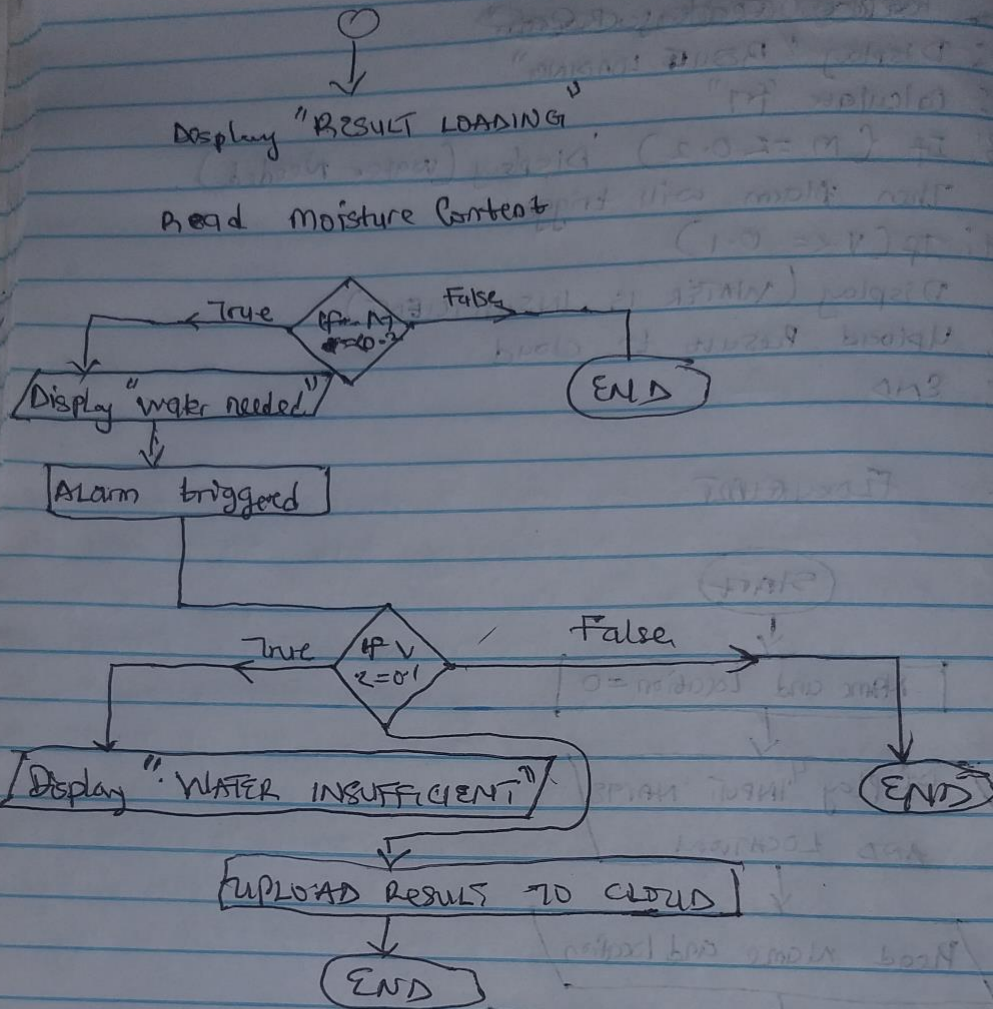 Display "RESULT LOADING"
Read Moisture Content
True
If M
False
Display "water needed"
END
Alarm triggered
True
If V
False
Display "WATER INSUFFICIENT"
END
UPLOAD RESULT TO CLOUD
END